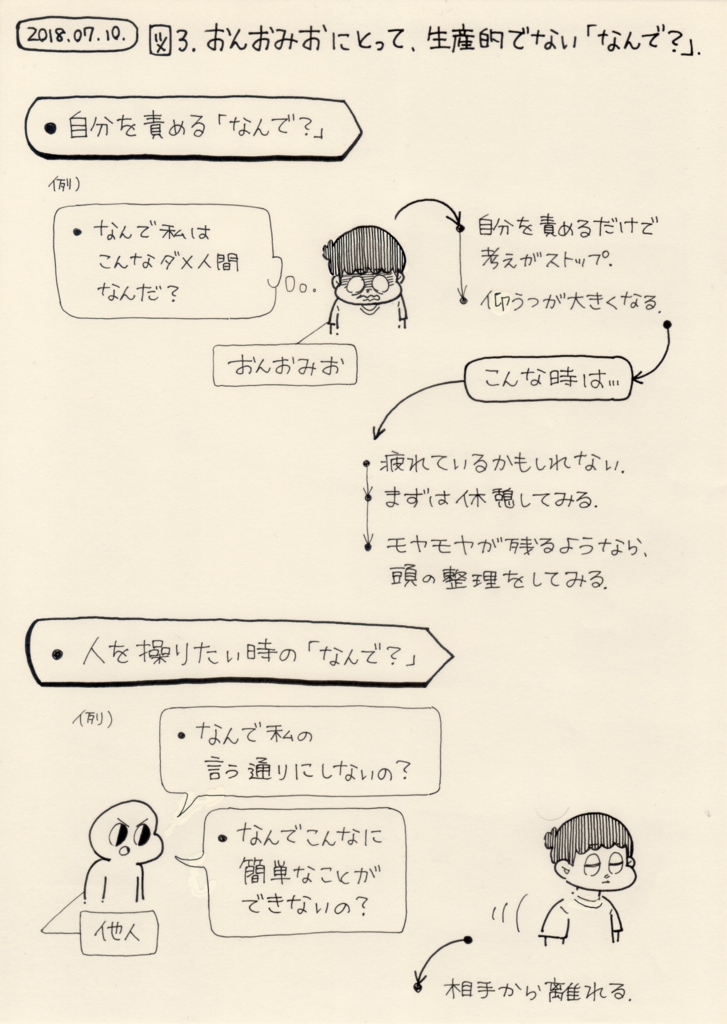 2018.07.10. 図3. おんおみおにとって、生産的でない「なんで?」.
• 自分を責める「なんで?」
(例)
• なんで私は
こんなダメ人間
なんだ?
おんおみお
自分を責めるだけで
考えがストップ.
仰うつが大きくなる.
こんな時は…
疲れているかもしれない.
まずは休憩してみる.
モヤモヤが残るようなら、
頭の整理をしてみる.
• 人を操りたい時の「なんで?」
(例)
• なんで私の
言う通りにしないの?
• なんでこんなに
簡単なことが
できないの?
他人
相手から離れる.